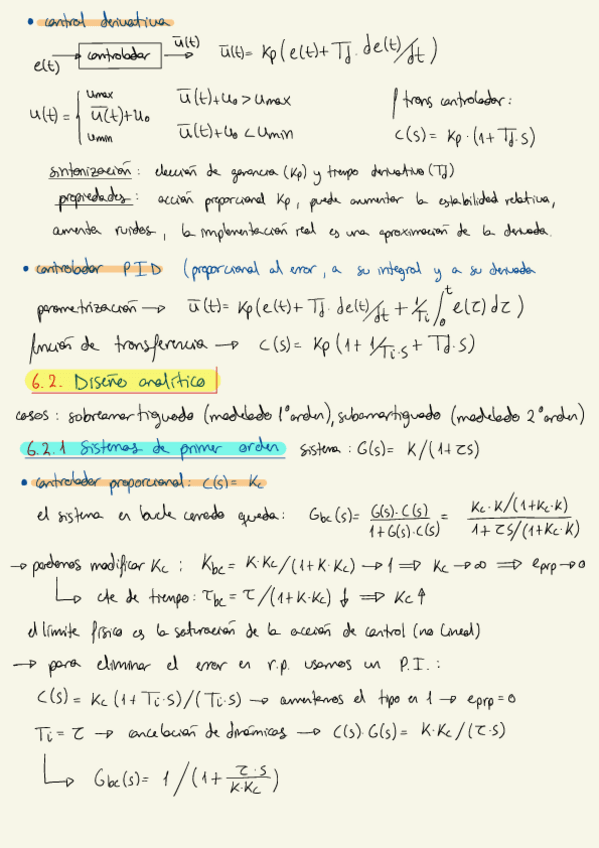 • control derivativa
e(t) → controlador → ū(t)   ū(t) = Kp(e(t) + Td · de(t)/dt)
u(t) = { umax   ū(t)+u₀ > umax
ū(t)+u₀
umin   ū(t)+u₀ < umin
f trans controlador:
C(s) = Kp · (1 + Td·s)
sintonización : elección de ganancia (Kp) y tiempo derivativo (Td)
propiedades : acción proporcional Kp, puede aumentar la estabilidad relativa,
aumenta ruidos, la implementación real es una aproximación de la derivada.
• controlador PID (proporcional al error, a su integral y a su derivada
parametrización → ū(t) = Kp(e(t) + Td · de(t)/dt + 1/Ti ∫₀ᵗ e(τ) dτ)
función de transferencia → C(s) = Kp(1 + 1/Ti·s + Td·s)
6.2. Diseño analítico
casos : sobreamortiguado (modelado 1º orden), subamortiguado (modelado 2º orden)
6.2.1 Sistemas de primer orden   sistema : G(s) = K/(1+τs)
• controlador proporcional: C(s) = Kc
el sistema en bucle cerrado queda: Gbc(s) = G(s)·C(s) / 1+G(s)·C(s) = Kc·K/(1+Kc·K) / 1+τs/(1+Kc·K)
→ podemos modificar Kc : Kbc = K·Kc/(1+K·Kc) → 1 ⇒ Kc → ∞ ⇒ eprp → 0
↳ cte de tiempo: τbc = τ/(1+K·Kc) ↓ ⇒ Kc ↑
el límite físico es la saturación de la acción de control (no lineal)
→ para eliminar el error en r.p. usamos un P.I.:
C(s) = Kc(1+Ti·s)/(Ti·s) → aumentamos el tipo en 1 → eprp = 0
Ti = τ → cancelación de dinámicas → C(s)·G(s) = K·Kc/(τ·s)
↳ Gbc(s) = 1/(1 + τ·s/K·Kc)